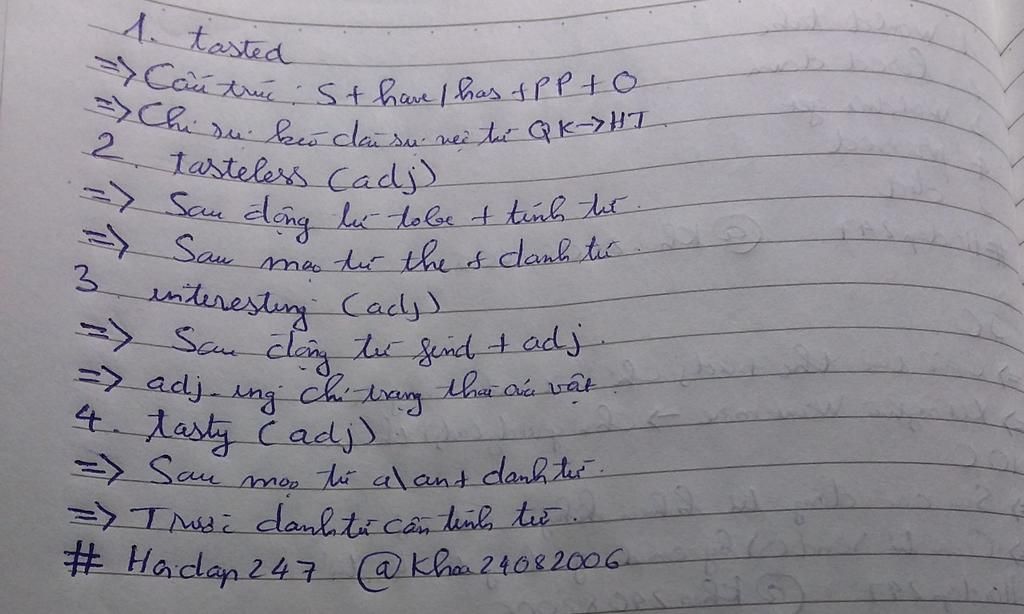 1. tasted
=> Cấu trúc: S + have / has + PP + O
=> Chỉ sự kéo dài sự việc từ QK -> HT
2. tasteless (adj)
=> Sau động từ tobe + tính từ.
=> Sau mạo từ the + danh từ
3. interesting (adj)
=> Sau động từ find + adj.
=> adj-ing chỉ trạng thái của vật
4. tasty (adj)
=> Sau mạo từ a\an + danh từ.
=> Trước danh từ cần tính từ.
# Hoidap247 @Khoa24082006